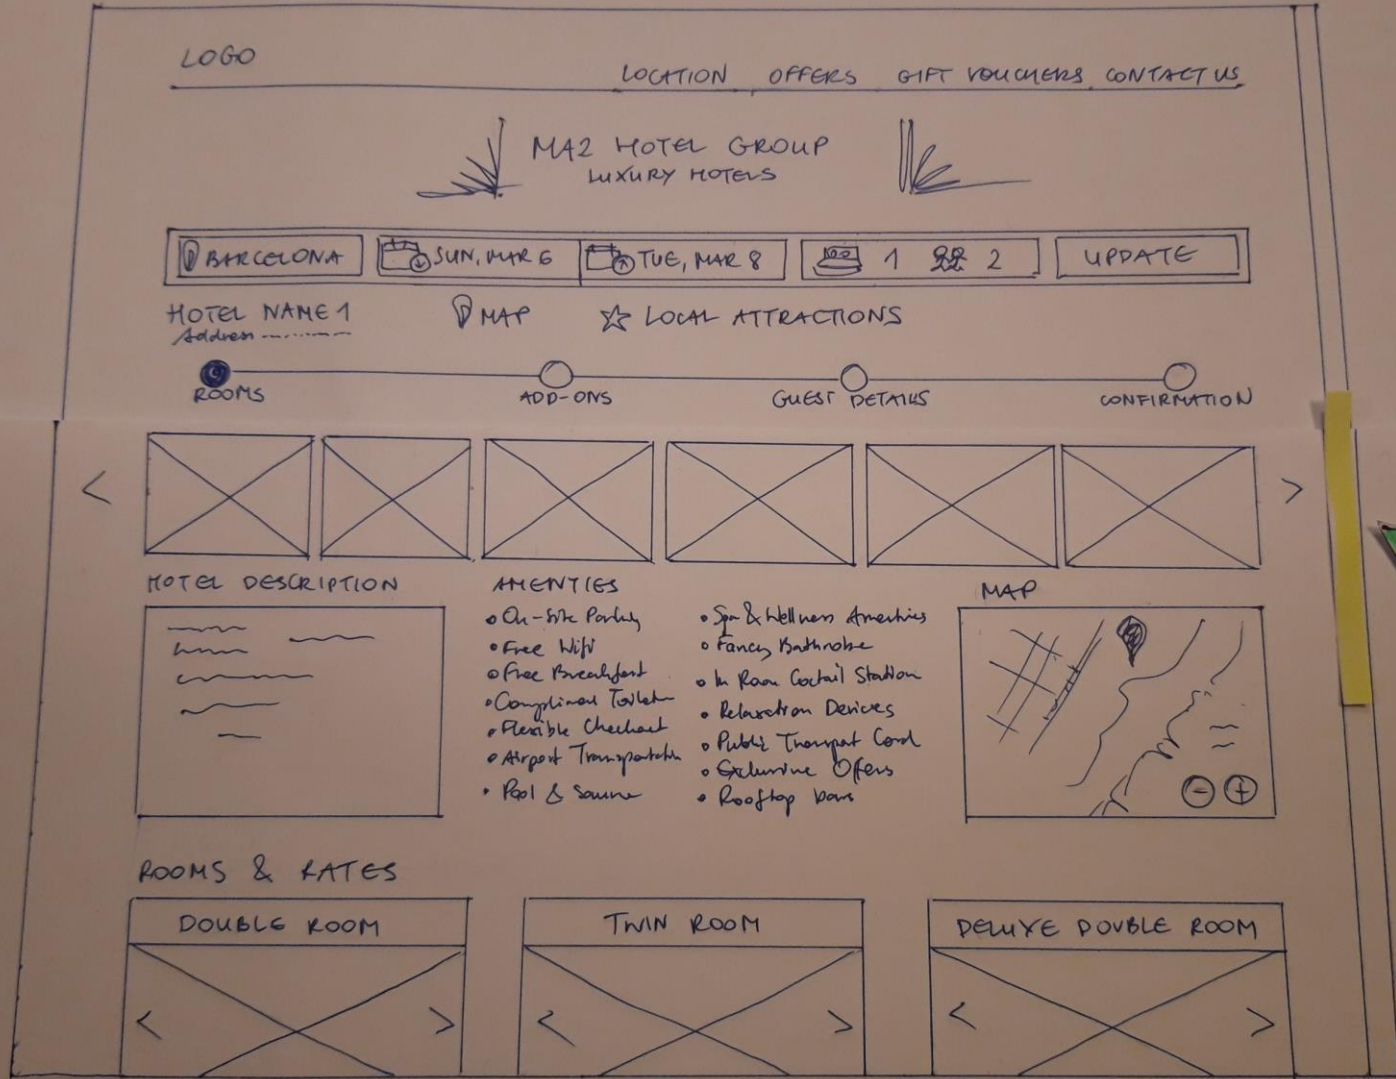 LOGO
LOCATION OFFERS GIFT VOUCHERS CONTACT US
MA2 HOTEL GROUP
LUXURY HOTELS
BARCELONA SUN, MAR 6 TUE, MAR 8 1 2 UPDATE
HOTEL NAME 1 MAP LOCAL ATTRACTIONS
Address
ROOMS ADD-ONS GUEST DETAILS CONFIRMATION
< >
HOTEL DESCRIPTION
AMENTIES
• On-Site Parking
• Free Wifi
• Free Breakfast
• Flexible Checkout
• Airport Transportation
• Pool & Sauna
• Spa & Wellness Amenities
• Fancy Bathrobe
• In Room Coctail Station
• Relaxation Devices
• Public Transport Card
• Exclusive Offers
• Rooftop bars
MAP
- +
ROOMS & RATES
DOUBLE ROOM TWIN ROOM DELUXE DOUBLE ROOM
< > < > < >